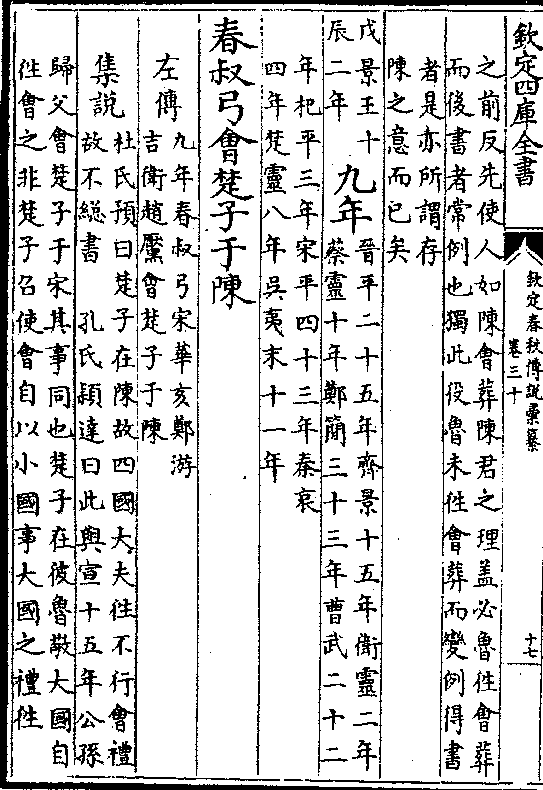 欽定四庫全書
欽定春秋傳說彙纂
卷三十
十七
之前反先使人如陳會葬陳君之理盖必魯徃會葬
而後書者常例也獨此役魯未徃會葬而變例得書
者是亦所謂存
陳之意而已矣
戊景王十
辰二年
九年
晉平二十五年齊景十五年衛靈二年
蔡靈十年鄭簡三十三年曹武二十二
年杞平三年宋平四十三年秦哀
四年楚靈八年吳夷末十一年
春叔弓會楚子于陳
左傳
九年春叔弓宋華亥鄭游
吉衛趙黶會楚子于陳
集說
杜氏預曰楚子在陳故四國大夫徃不行會禮
故不緫書　孔氏頴達曰此與宣十五年公孫
歸父會楚子于宋其事同也楚子在彼魯敬大國自
徃會之非楚子召使會自以小國事大國之禮徃